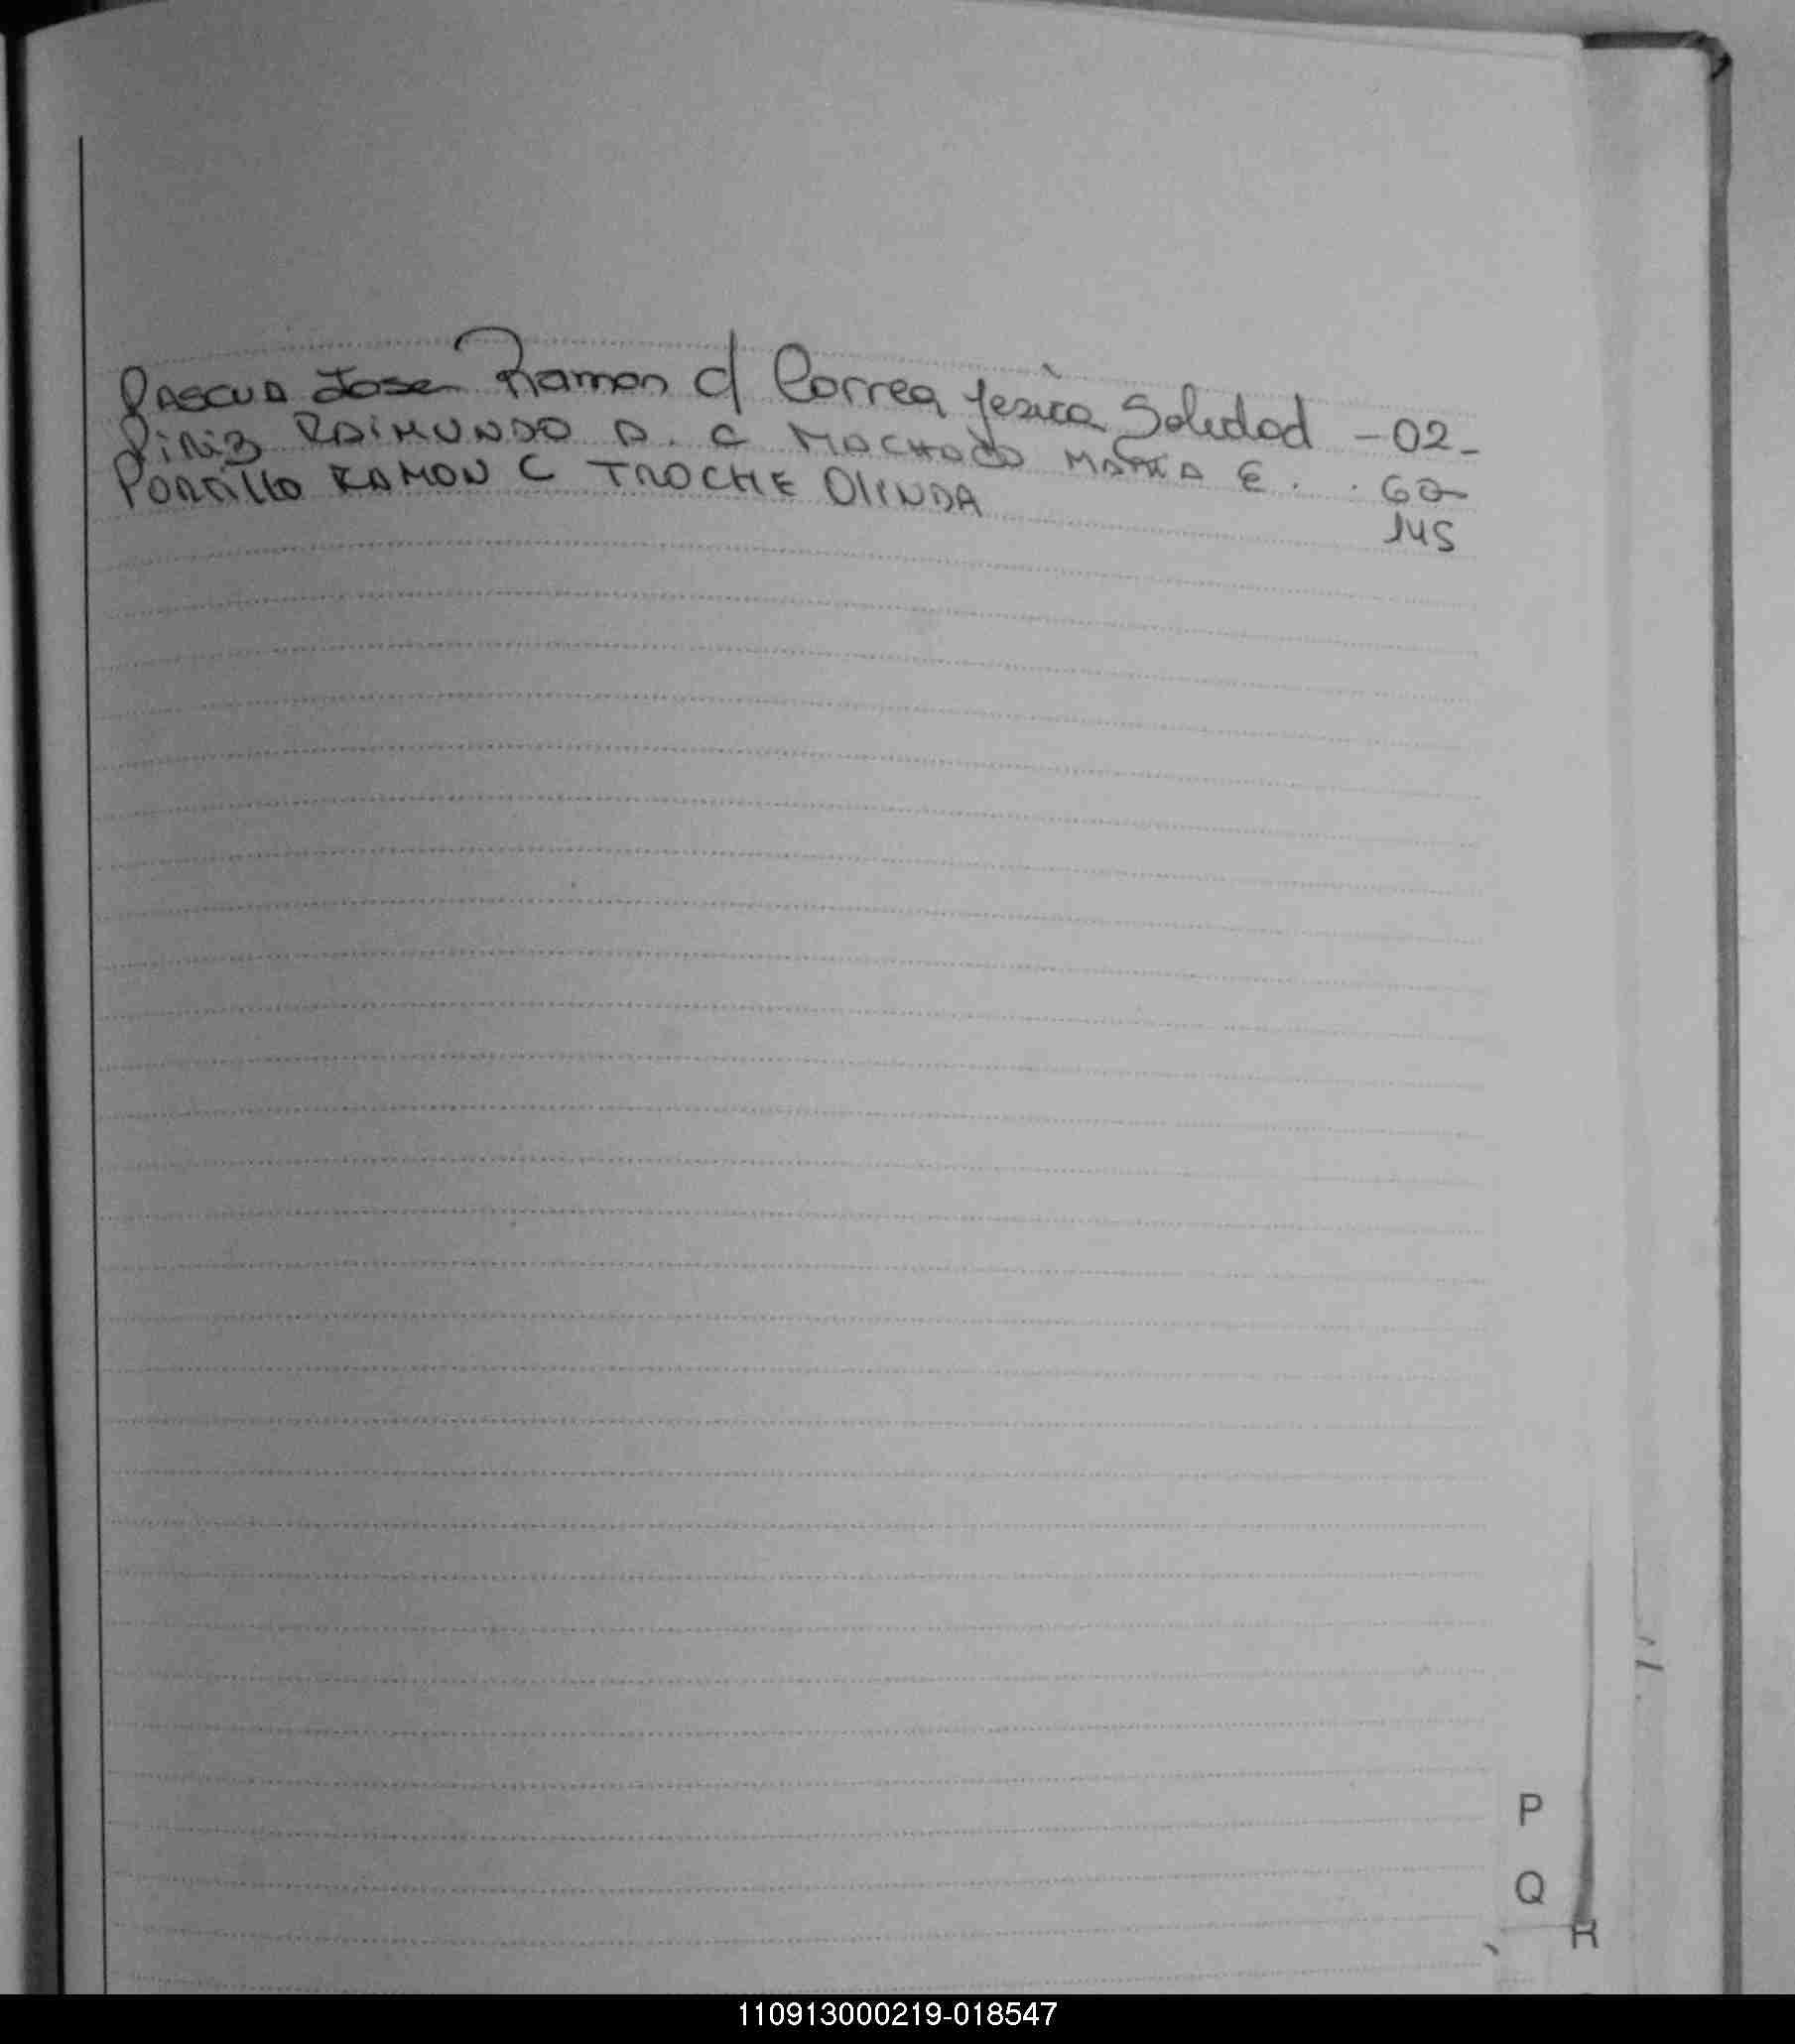 Pascua Jose Ramon c/ Correa Yesica Soledad - 02 -
Piriz RAIMUNDO A. C MACHADO MARIA E. . 60
PORTILLO RAMON C TROCHE OLINDA 145
P
Q
R
110913000219-018547